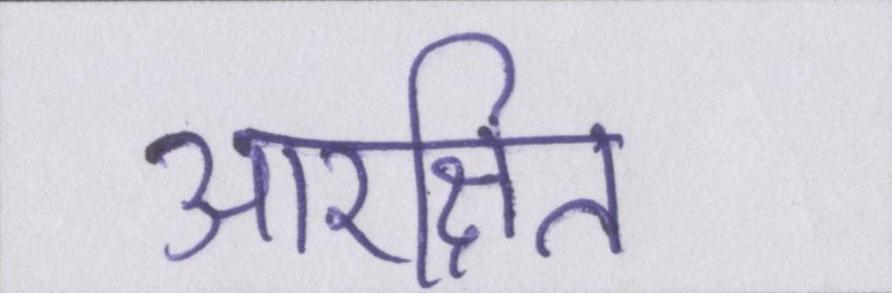 आरक्षित